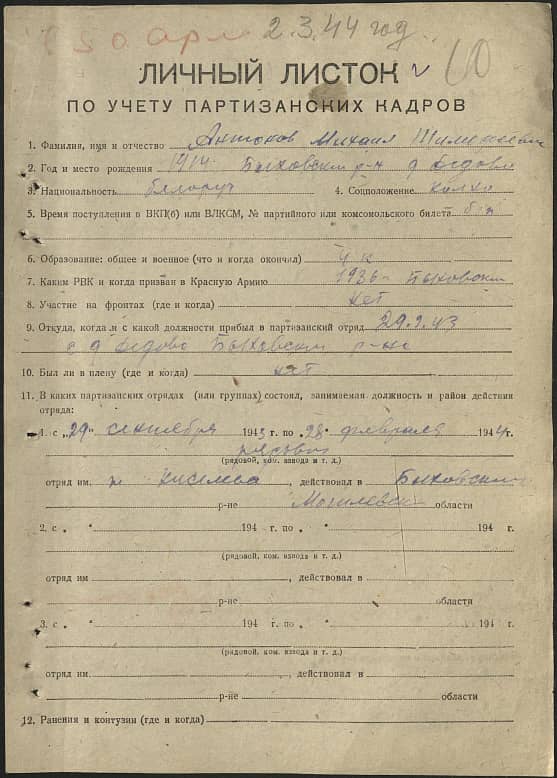 50 арм 2.3.44 год
10
ЛИЧНЫЙ ЛИСТОК
ПО УЧЕТУ ПАРТИЗАНСКИХ КАДРОВ
1. Фамилия, имя и отчество Антонов Михаил
2. Год и место рождения 1914 Быховский р-н д Бедово
3. Национальность белорус 4. Соцположение колхо
5. Время поступления в ВКП(б) или ВЛКСМ, № партийного или комсомольского билета б/п
6. Образование: общее и военное (что и когда окончил) 4 к
7. Каким РВК и когда призван в Красную Армию 1936 Быховским
8. Участие на фронтах (где и когда) нет
9. Откуда, когда и с какой должности прибыл в партизанский отряд 29.9.43
с д Бедово Быховский р-на
10. Был ли в плену (где и когда) нет
11. В каких партизанских отрядах (или группах) состоял, занимаемая должность и район действия
отряда:
1. с „29" сентября 1943 г. по „28" февраля 1944 г.
рядовой
(рядовой, ком. взвода и т. д.)
отряд им. Киселева, действовал в Быховском
р-не Могилевской области
2. с „ " 194 г. по „ " 194 г.
(рядовой, ком. взвода и т. д.)
отряд им , действовал в
р-не области
3. с „ " 194 г. по „ " 194 г.
(рядовой, ком. взвода и т. д.)
отряд им. , действовал в
р-не области
12. Ранения и контузии (где и когда)